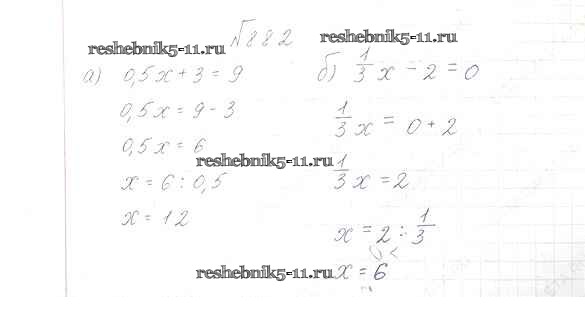 №882
reshebnik5-11.ru
reshebnik5-11.ru
а) 0,5x + 3 = 9
0,5x = 9 - 3
0,5x = 6
x = 6 : 0,5
x = 12
б) 1/3 x - 2 = 0
1/3 x = 0 + 2
1/3 x = 2
x = 2 : 1/3
x = 6
reshebnik5-11.ru
reshebnik5-11.ru